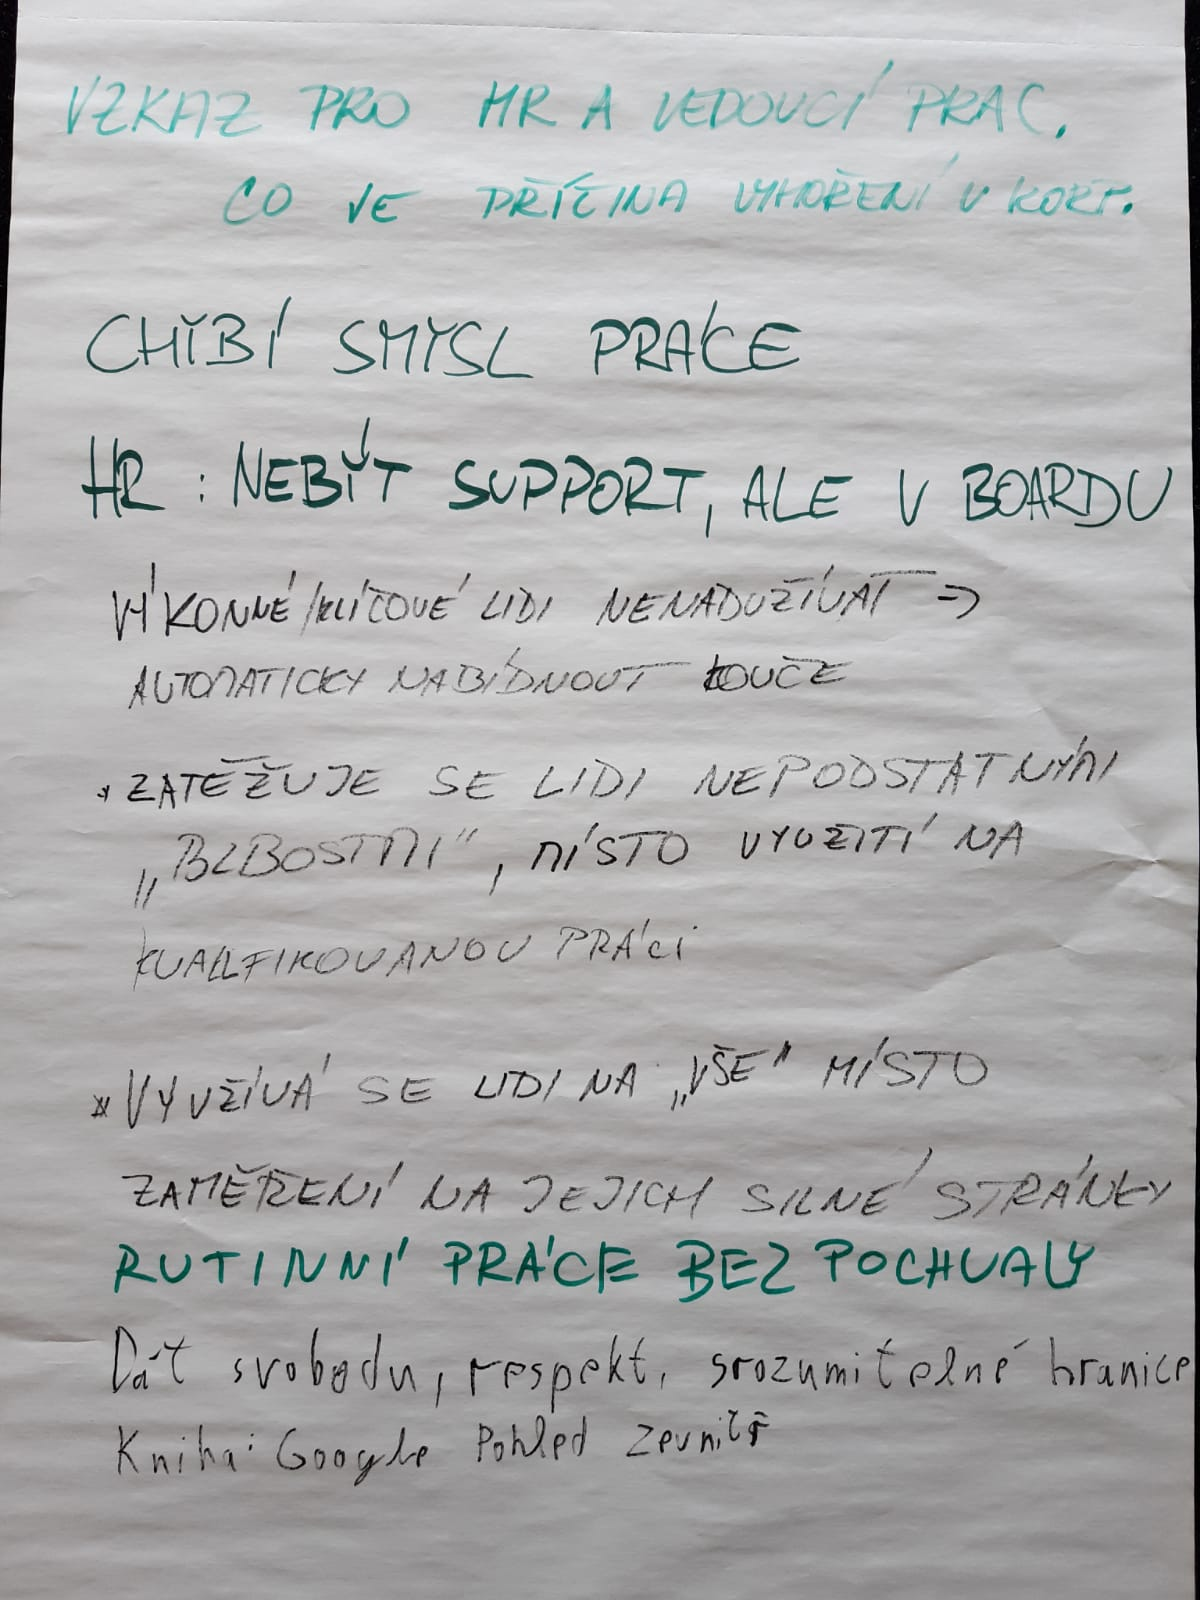 VZKAZ PRO HR A VEDOUCÍ PRAC.
CO JE PŘÍČINA VYHOŘENÍ V KORP.
CHYBÍ SMYSL PRÁCE
HR : NEBÝT SUPPORT, ALE V BOARDU
VÝKONNÉ/KLÍČOVÉ LIDI NENADUŽÍVAT =>
AUTOMATICKY NABÍDNOUT KOUČE
* ZATĚŽUJE SE LIDI NEPODSTATNÝMI
„BLBOSTMI“, MÍSTO VYUŽITÍ NA
KVALIFIKOVANOU PRÁCI
* VYUŽÍVÁ SE LIDI NA „VŠE“ MÍSTO
ZAMĚŘENÍ NA JEJICH SILNÉ STRÁNKY
RUTINNÍ PRÁCE BEZ POCHVALY
Dát svobodu, respekt, srozumitelné hranice
Kniha: Google Pohled zevnitř